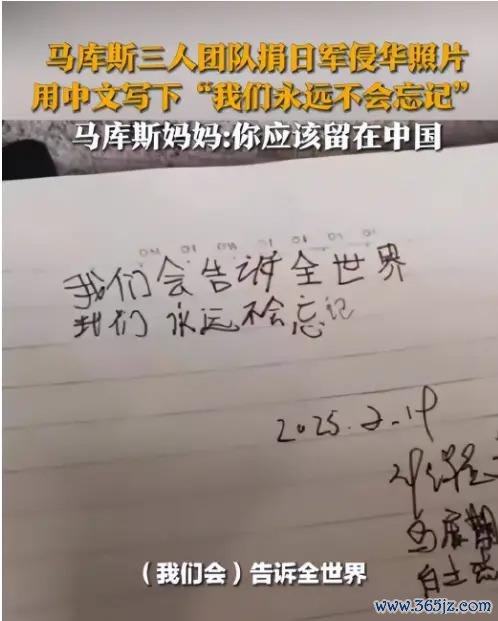 马库斯三人团队捐日军侵华照片
用中文写下“我们永远不会忘记”
马库斯妈妈:你应该留在中国
我们会告诉全世界
我们永远不会忘记
2025.2.19
马库斯
（我们会）告诉全世界
www.365jz.com